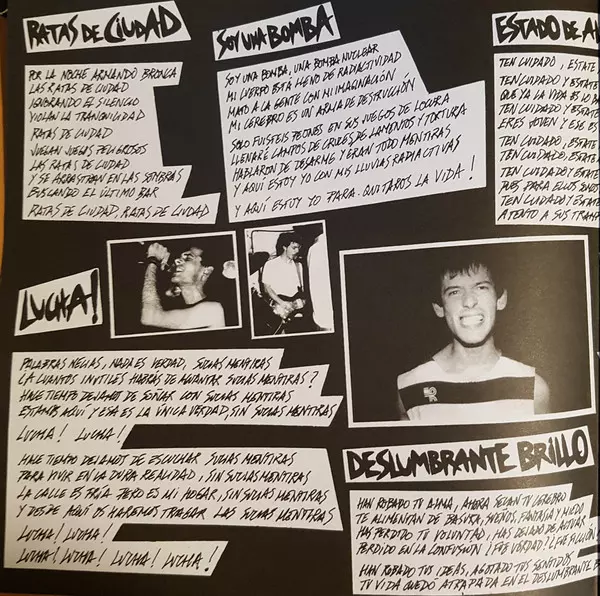 RATAS DE CIUDAD
POR LA NOCHE ARMANDO BRONCA
LAS RATAS DE CIUDAD
IGNORANDO EL SILENCIO
VIOLAN LA TRANQUILIDAD
RATAS DE CIUDAD
JUEGAN JUEGOS PELIGROSOS
LAS RATAS DE CIUDAD
Y SE ARRASTRAN EN LAS SOMBRAS
BUSCANDO EL ÚLTIMO BAR
RATAS DE CIUDAD, RATAS DE CIUDAD
SOY UNA BOMBA
SOY UNA BOMBA, UNA BOMBA NUCLEAR
MI CUERPO ESTÁ LLENO DE RADIACTIVIDAD
MATO A LA GENTE CON MI IMAGINACIÓN
MI CEREBRO ES UN ARMA DE DESTRUCCIÓN
SOLO FUISTEIS PEONES EN SUS JUEGOS DE LOCURA
LLENARÉ CAMPOS DE CRUCES, DE LAMENTOS Y TORTURA
HABLARON DE DESARME Y ERAN TODO MENTIRAS
Y AQUÍ ESTOY YO CON MIS LLUVIAS RADIACTIVAS
Y AQUÍ ESTOY YO PARA QUITAROS LA VIDA!
ESTADO DE A
TEN CUIDADO, ESTATE
TEN CUIDADO Y ESTATE
QUE YA LA VIDA ES LO
TEN CUIDADO Y ESTATE
ERES JOVEN Y ESE ES
TEN CUIDADO, ESTATE
TEN CUIDADO, ESTATE
TEN CUIDADO Y ESTATE
PUES PARA ELLOS SOMOS
TEN CUIDADO Y ESTATE
ATENTO A SUS TRAM
LUCHA!
PALABRAS NECIAS, NADA ES VERDAD, SUCIAS MENTIRAS
¿A CUANTOS INUTILES HABRÁS DE AGUANTAR SUCIAS MENTIRAS?
HACE TIEMPO DEJAMOS DE SOÑAR CON SUCIAS MENTIRAS
ESTAMOS AQUÍ Y ESA ES LA ÚNICA VERDAD, SIN SUCIAS MENTIRAS
LUCHA! LUCHA!
HACE TIEMPO DEJAMOS DE ESCUCHAR SUCIAS MENTIRAS
PARA VIVIR EN LA DURA REALIDAD, SIN SUCIAS MENTIRAS
LA CALLE ES FRÍA PERO ES MI HOGAR, SIN SUCIAS MENTIRAS
Y DESDE AQUÍ OS HAREMOS TRAGAR LAS SUCIAS MENTIRAS
LUCHA! LUCHA!
LUCHA! LUCHA! LUCHA! LUCHA!
DESLUMBRANTE BRILLO
HAN ROBADO TU ALMA, AHORA SECAN TU CEREBRO
TE ALIMENTAN DE BASURA, SUEÑOS, FANTASÍA Y MIEDO
HAS PERDIDO TU VOLUNTAD, HAS DEJADO DE ACTUAR
PERDIDO EN LA CONFUSIÓN ¿FUE VERDAD? ¿FUE FICCIÓN
HAN ROBADO TUS IDEAS, AGOTADO TUS SENTIDOS
TU VIDA QUEDÓ ATRAPADA EN EL DESLUMBRANTE B